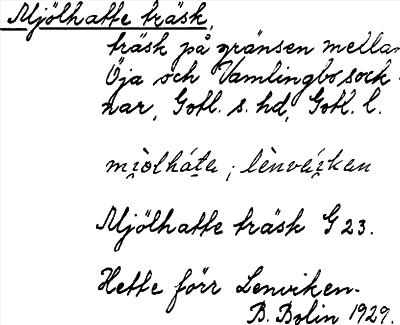 Mjölhatte träsk,
träsk på gränsen mellan
Öja och Vamlingbo sock-
nar, Gotl. s. hd, Gotl. l.
mìolháta; lènváikan
Mjölhatte träsk G 23.
Hette förr Lenviken.
B. Bolin 1929.